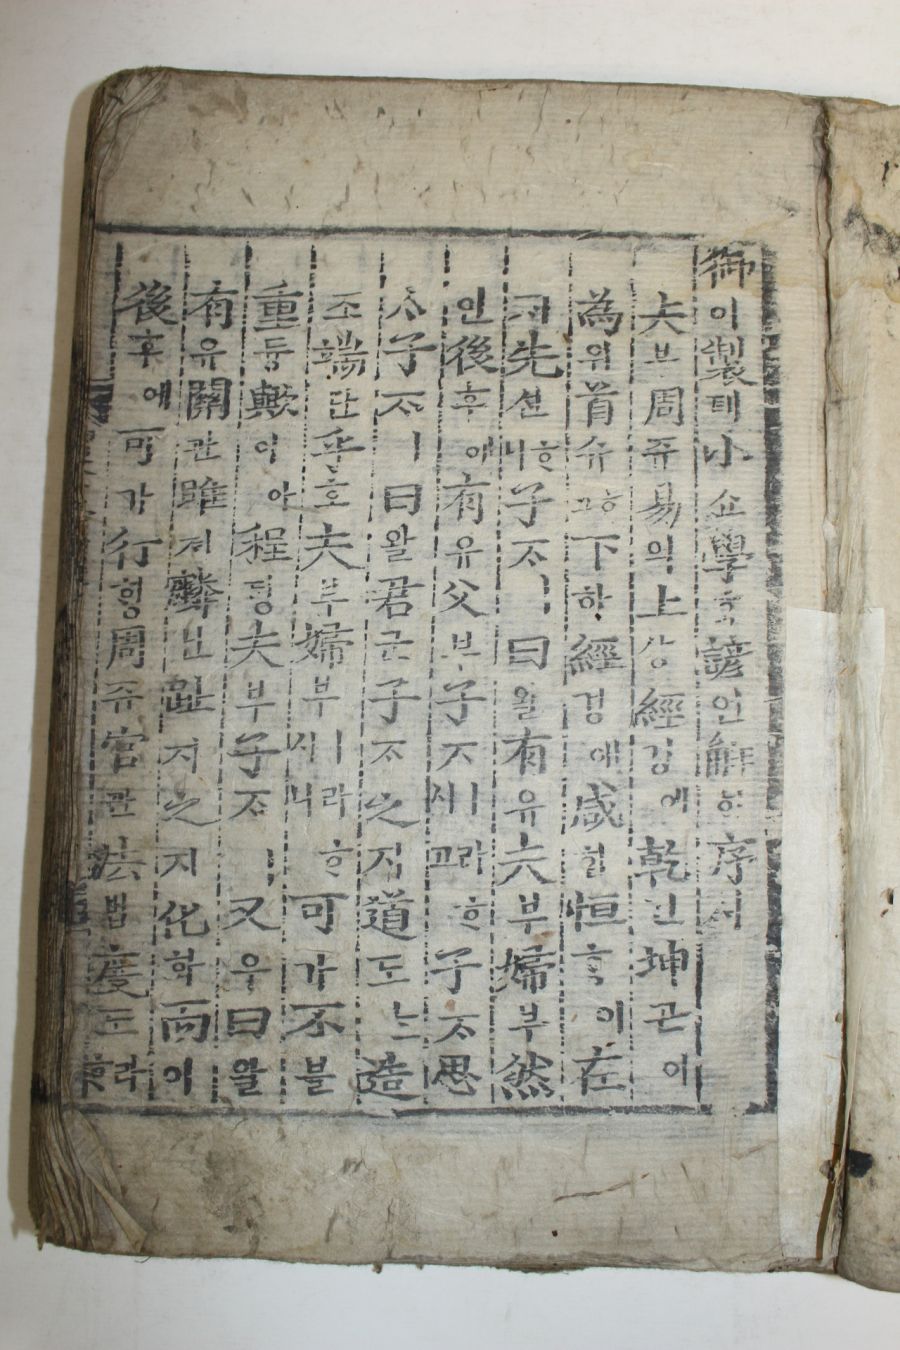 御어製졔小쇼學ᄒᆞᆨ諺언解ᄒᆡ序셔
夫부周쥬易역의上샹經경에乾건坤곤이
為위首슈ᄒᆞ고下하經경에咸함恒ᄒᆞᆼ이在
ᄌᆡ先션ᄒᆞ니子ᄌᆞㅣ曰왈有유夫부婦부然
연後후에有유父부子ᄌᆞㅣ라ᄒᆞ시고子ᄌᆞ思
ᄉᆞ子ᄌᆞㅣ曰왈君군子ᄌᆞ之지道도ᄂᆞᆫ造
조端단乎호夫부婦부ㅣ라ᄒᆞ시니可가不블
重듕歟여아程뎡夫부子ᄌᆞㅣ又우曰왈
有유關관雎져麟닌趾지之지化화而이
後후에可가行ᄒᆡᆼ周쥬官관法법度도라ᄒᆞ